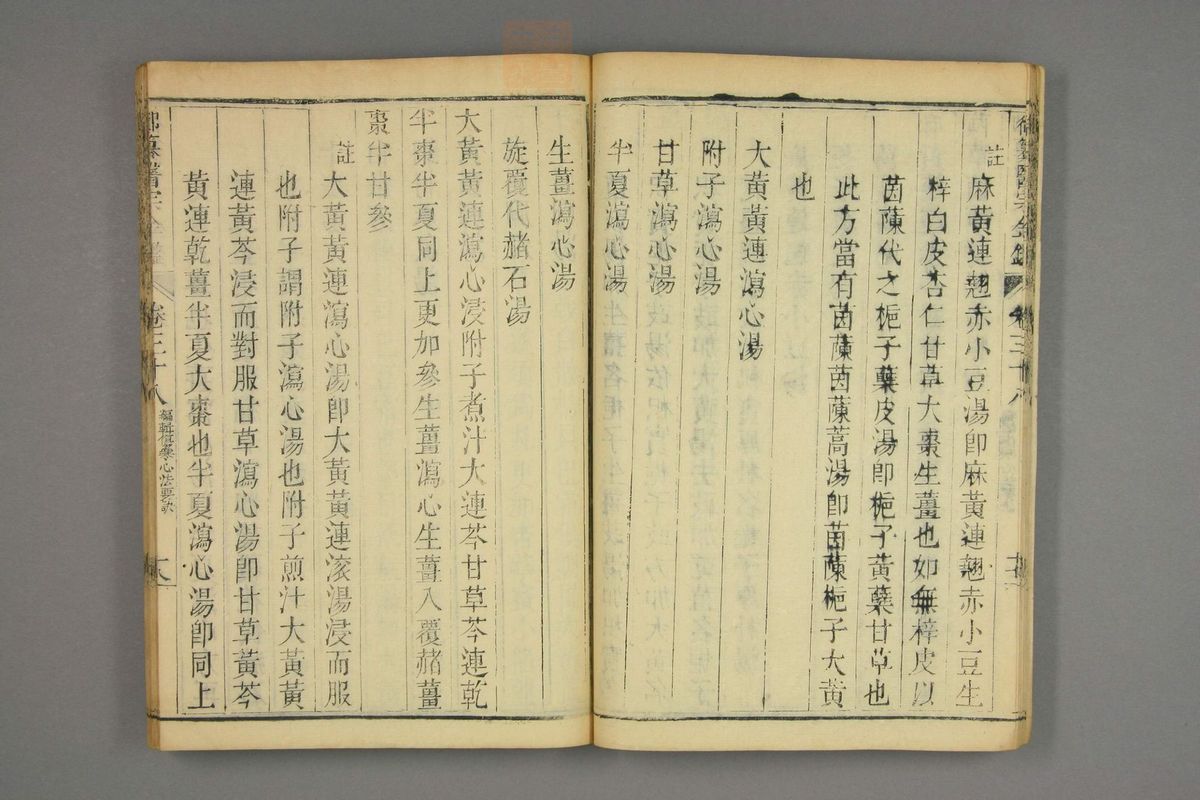 御纂醫宗金鑑 卷三十八
註 麻黃連翹赤小豆湯卽麻黃連翹赤小豆生
梓白皮杏仁甘草大棗生薑也如無梓皮以
茵蔯代之梔子蘗皮湯卽梔子黃蘗甘草也
此方當有茵蔯茵蔯蒿湯卽茵蔯梔子大黃
也
大黃黃連瀉心湯
附子瀉心湯
甘草瀉心湯
半夏瀉心湯
生薑瀉心湯
旋覆代赭石湯
大黃黃連瀉心浸附子煮汁大連芩甘草芩連乾
半棗半夏同上更加參生薑瀉心生薑入覆赭薑
棗半甘參
註 大黃黃連瀉心湯卽大黃黃連滾湯浸而服
也附子謂附子瀉心湯也附子煎汁大黃黃
連黃芩浸而對服甘草瀉心湯卽甘草黃芩
黃連乾薑半夏大棗也半夏瀉心湯卽同上
御纂醫宗金鑑 卷三十八 編輯傷寒心法要訣